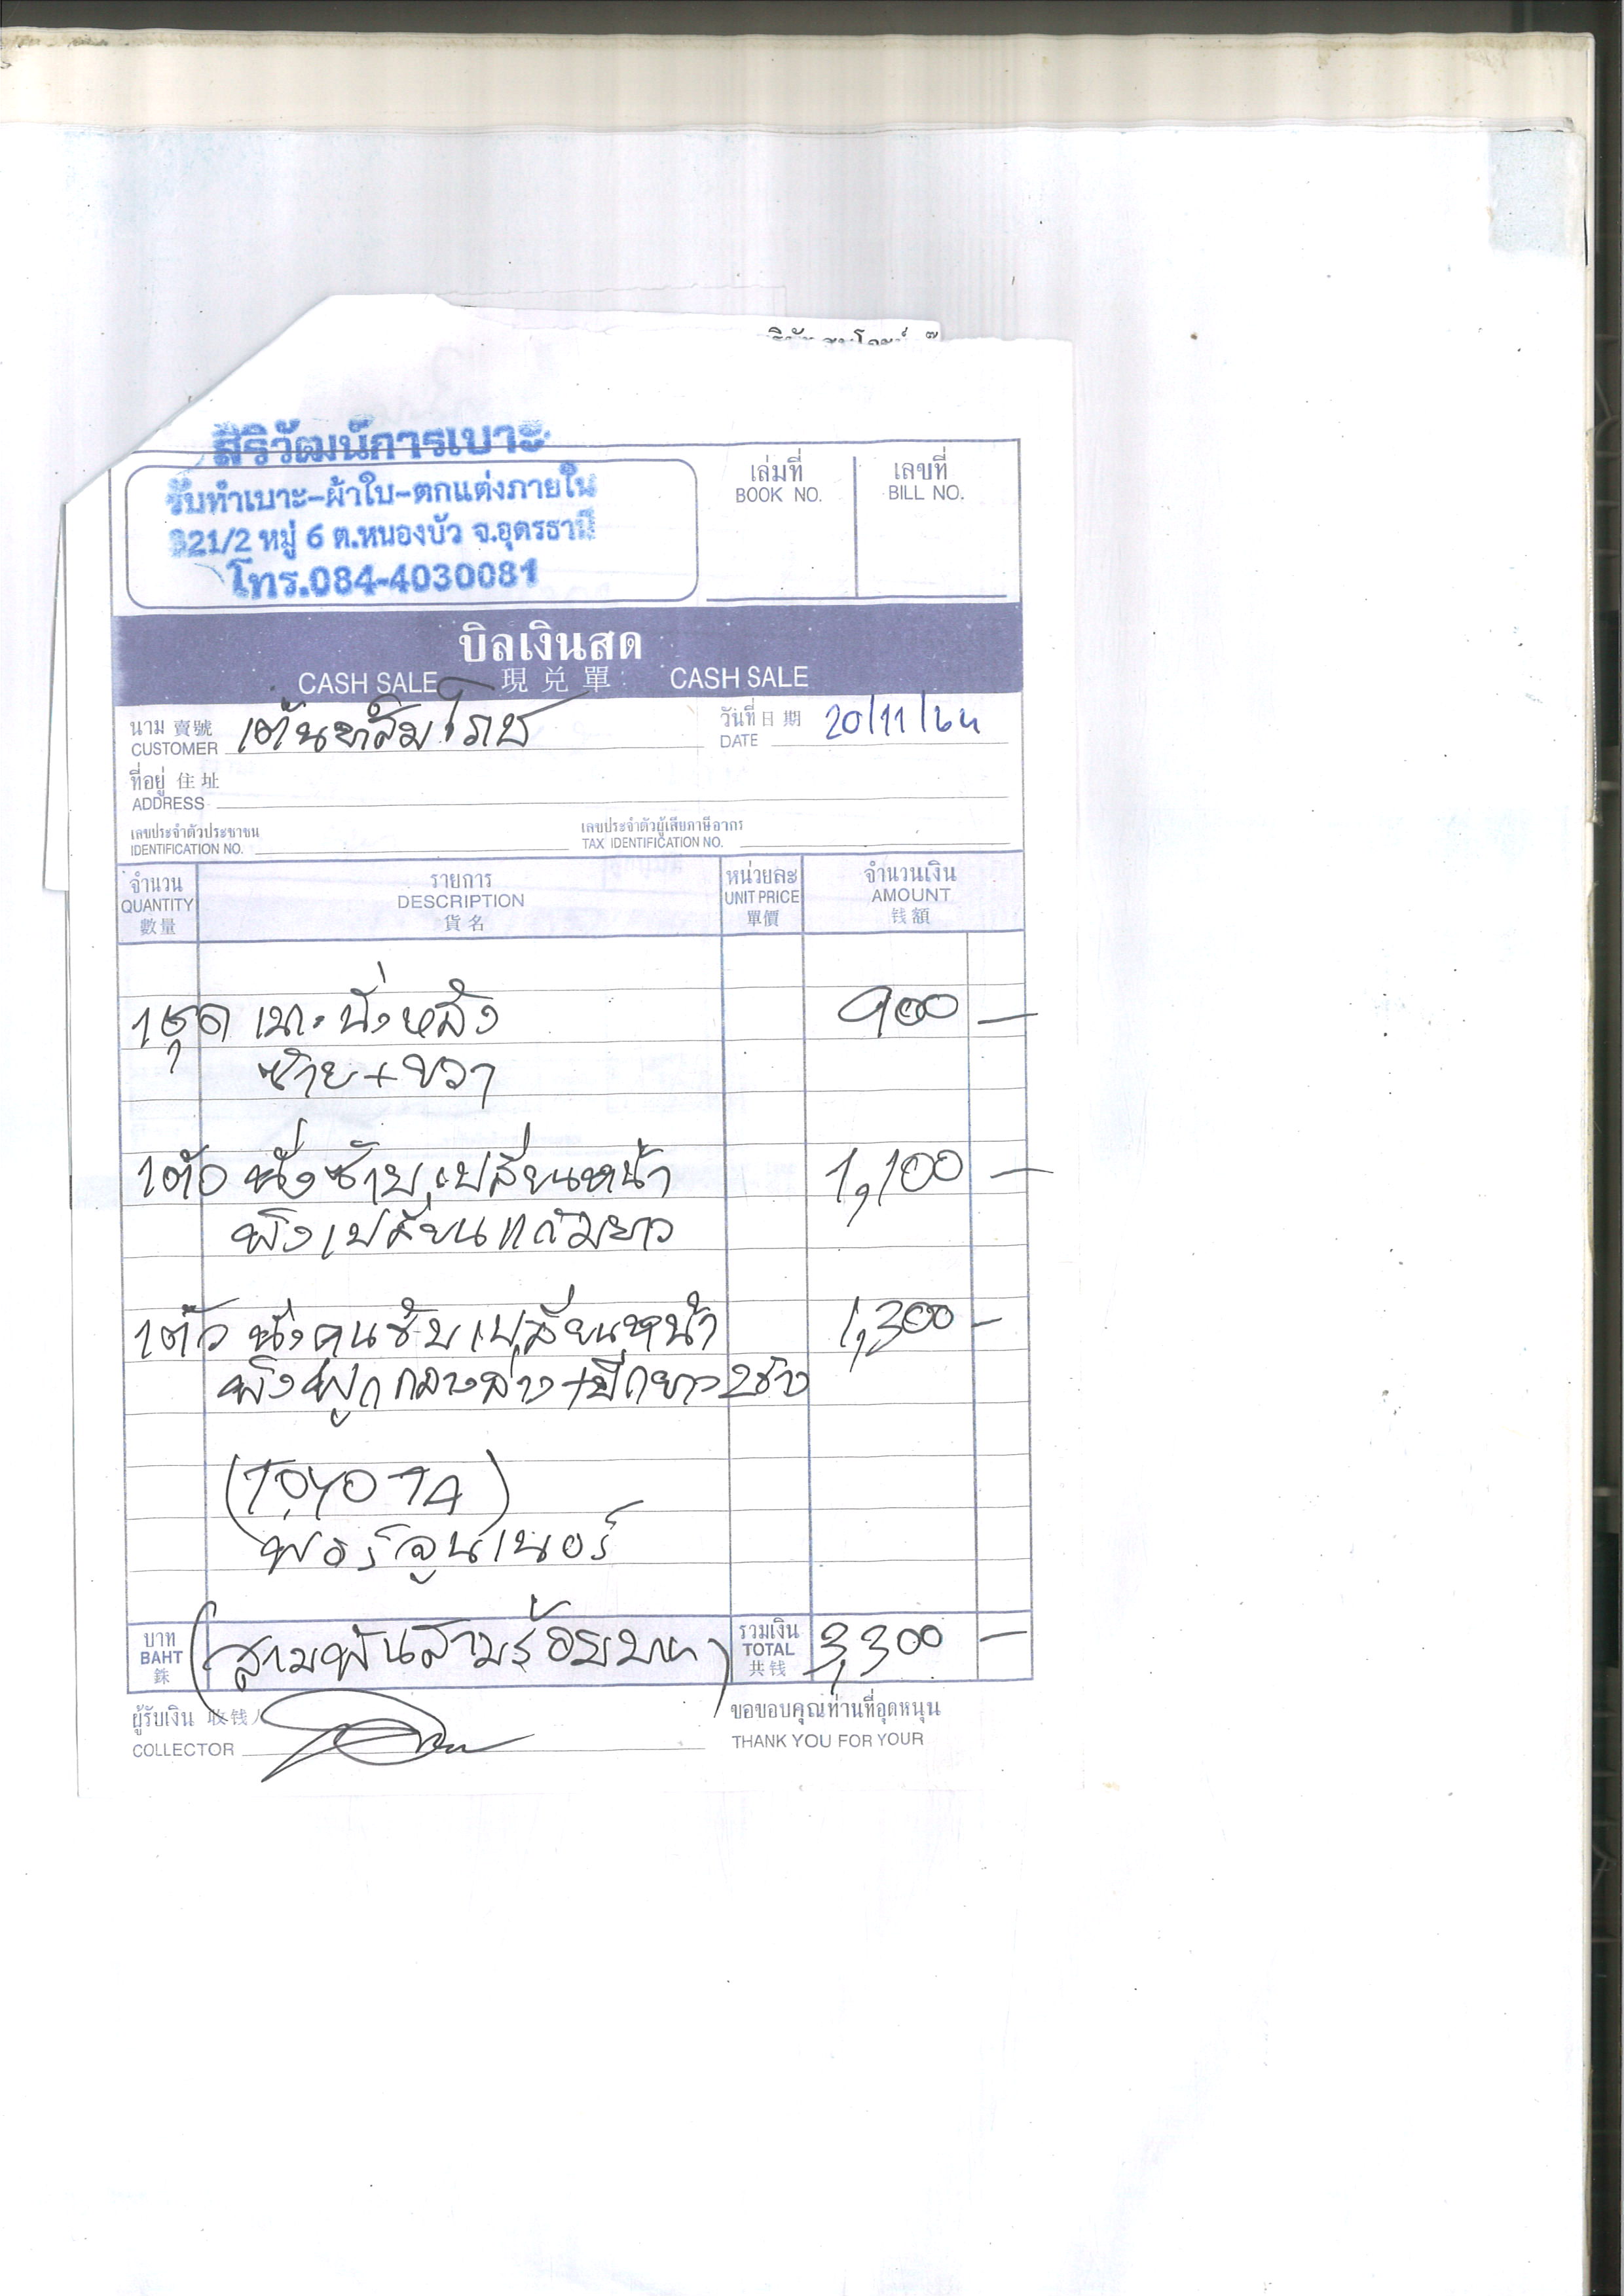 สิริวัฒน์การเบาะ
รับทำเบาะ-ผ้าใบ-ตกแต่งภายใน
321/2 หมู่ 6 ต.หนองบัว จ.อุดรธานี
โทร.084-4030081
เล่มที่ เลขที่
BOOK NO. BILL NO.
บิลเงินสด
CASH SALE 現兌單 CASH SALE
นาม 賣號 วันที่ 日期 20/11/64
CUSTOMER DATE
ที่อยู่ 住址
ADDRESS
เลขประจำตัวประชาชน เลขประจำตัวผู้เสียภาษีอากร
IDENTIFICATION NO. TAX IDENTIFICATION NO.
จำนวน รายการ หน่วยละ จำนวนเงิน
QUANTITY DESCRIPTION UNIT PRICE AMOUNT
數量 貨名 單價 钱額
1ชุด เบาะนั่งหลัง 900 –
ซ้าย+ขวา
1ตัว นั่งซ้าย เปลี่ยนหน้า 1,100 –
พิงเปลี่ยนแก้มยาว
1ตัว นั่งคนขับเปลี่ยนหน้า 1,300 –
พิงฟูกกลางล่าง+ปีกยาว 2ข้าง
(TOYOTA)
ฟอร์จูนเนอร์
บาท (สามพันสามร้อยบาท) รวมเงิน 3,300 –
BAHT TOTAL
銖 共钱
ผู้รับเงิน 收钱人 ขอขอบคุณท่านที่อุดหนุน
COLLECTOR THANK YOU FOR YOUR